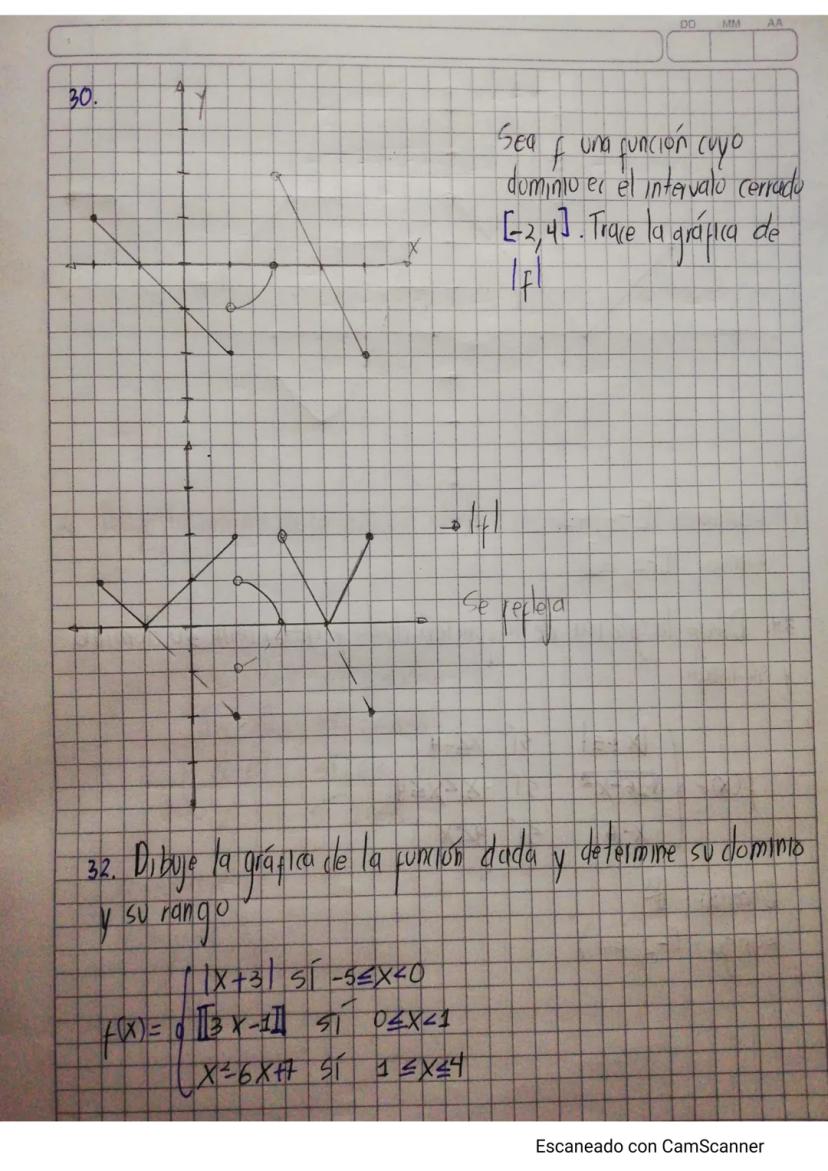 DD MM AA
30.
Y
Sea f una función cuyo
dominio es el intervalo cerrado
[-2,4]. Trace la gráfica de
|f|
X
→ |f|
Se refleja
32. Dibuje la gráfica de la función dada y determine su dominio
y su rango
|x+3| sí -5≤x<0
f(x)= { [[3x-1]] sí 0≤x<1
x²-6x+7 sí 1≤x≤4
Escaneado con CamScanner